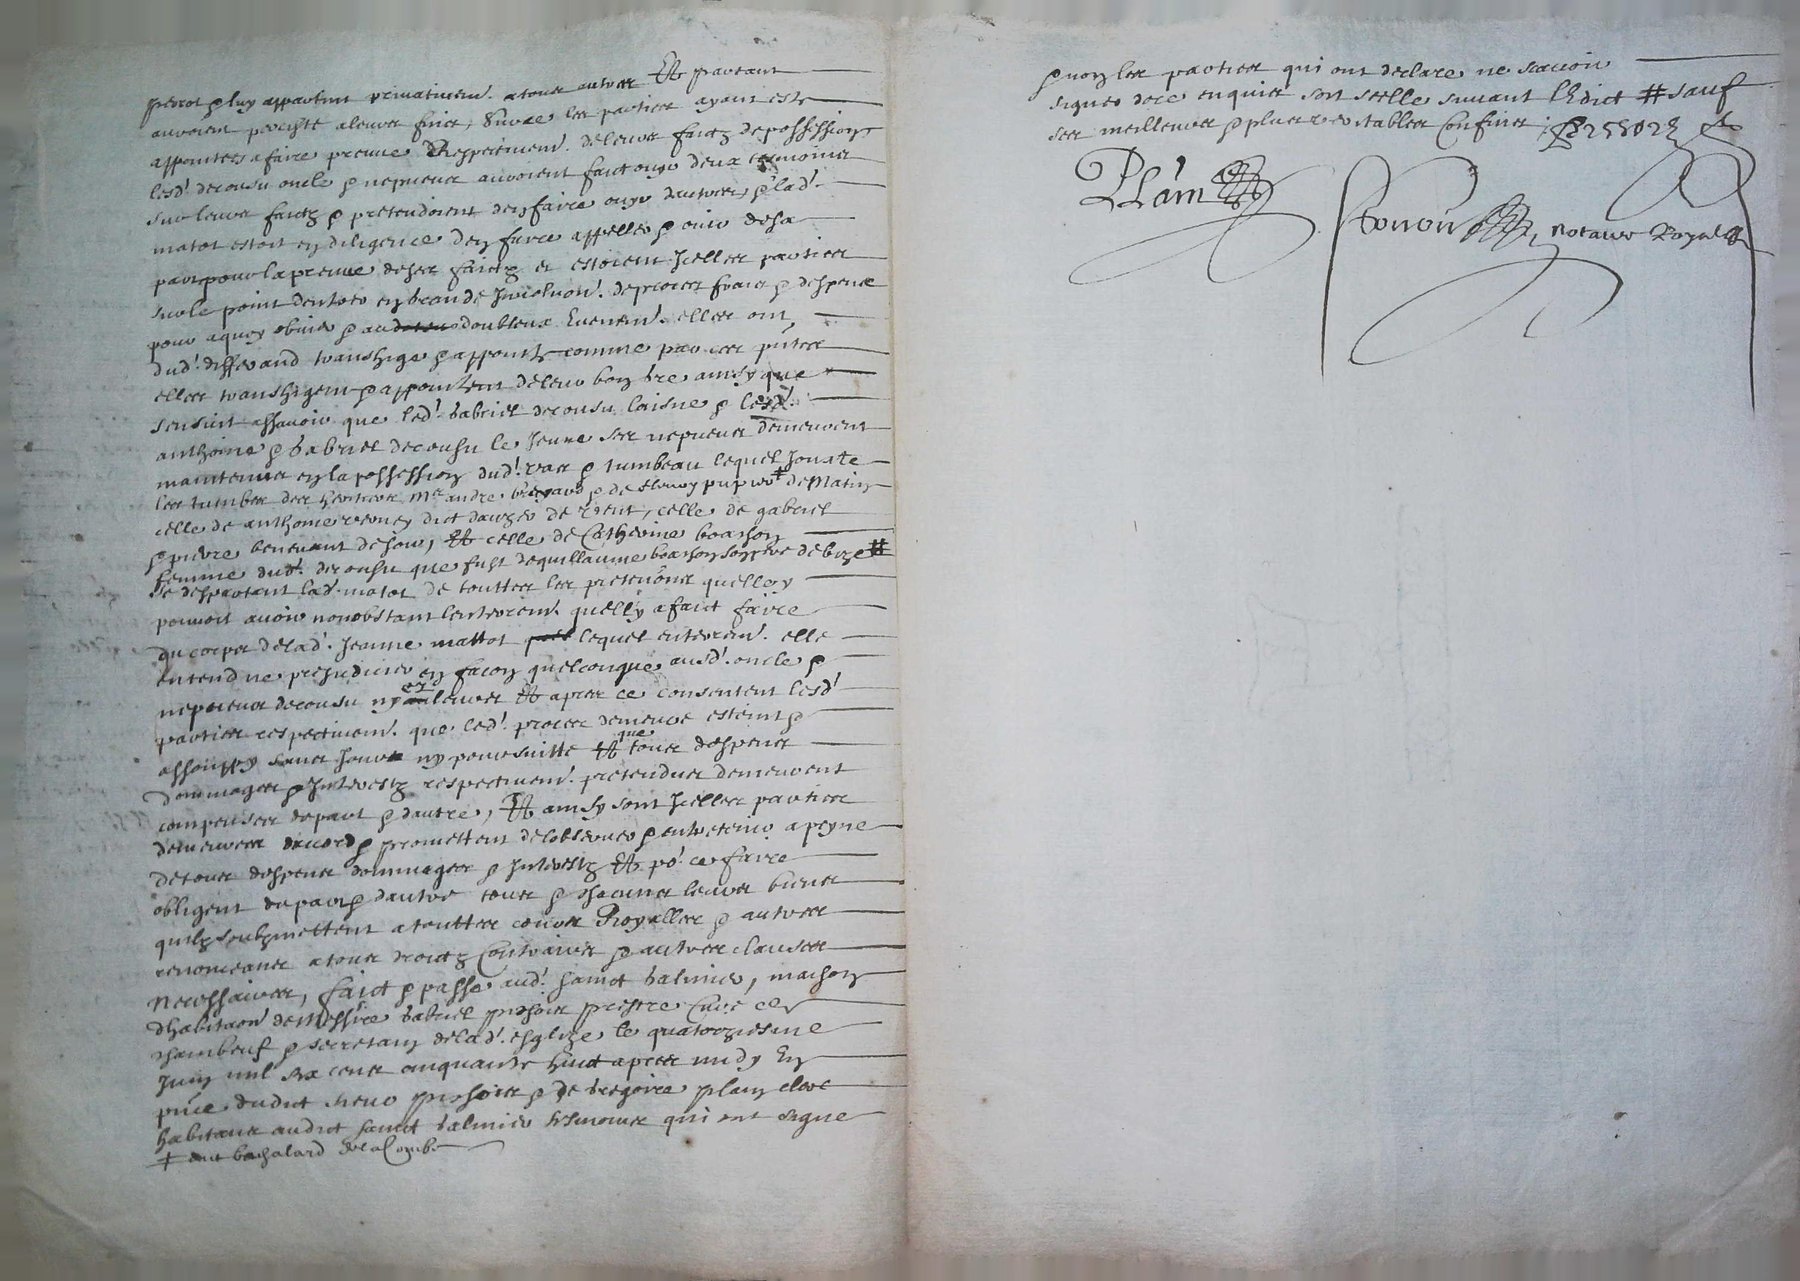 perrot & luy appartint privativem.t a tous autres Et partant
auroient persisté a leurs fins, Surce les parties ayant esté
appointees a faire preuve Respectivem.t de leurs faictz de possession
lesd.t decousu oncle & nepveus auroient faict ouyr deux tesmoins
sur leurs faictz & pretendoient den faire ouyr dautres, & lad.t
matot estoit en diligence den faire appeller & ouir de sa
part pour la preuve de ses faictz et estoient Icelles parties
sur le point dentrer en grande Involuon.t de proces frais & despens
pour a quoy obvier & au doubteux Evenem.t elles ont
dud.t differand transhige & appointé comme par ces pntes
elles transhigent & appointent de leur bon gre ainsy que
sensuit assavoir que led.t gabriel decousu laisne & lesd.t
anthoine & gabriel decousu le Jeune ses nepveus demeurent
maintenus en la possession dud.t vas & tumbeau lequel Jouxte
les tumbes des heritiers M.re andre & de pup # de Matin
celle de anthoine verney dict dauzer de vient, celle de gabriel
& pierre benevant de soir, Et celle de Catherine boasson
femme dud.t decousu que fust de guillaume boasson son pere de bize #
Se despartant lad.t matot de touttes les pretentions quelle y
pouvoit avoir nonobstant lenterrem.t quelle y a faict faire
du corps de lad.t Jeanne mattot lequel enterrem.t elle
entend ne prejudicier en facon quelconque ausd.t oncle &
nepveus decousu ny es leurs Et apres ce consentent lesd.t
parties respectivem.t que led.t proces demeure esteint &
assoupy sans Jour ny poursuitte Et que tous despens
dommages & Interestz respectivem.t pretendus demeurent
compenses de part & dautre, Et ainsy sont Icelles parties
demeurees daccord & promettent de lobserver & entretenir a peyne
de tous despens dommages & Interestz Et po.r ce faire
obligent de part & dautre tous & chacuns leurs biens
quilz soubzmettent a touttes cours Royalles & autres
renonceans a tous droictz Contraires & autres clauses
Necessaires, faict & passe aud.t sainct galmier, maison
dhabitaon de Messire gabriel presbtre Curé de
chambeuf & secretain de lad.t esglize le quatorziesme
Juin mil six cens cinquante huict apres midy En
pnce dudict sieur & de gregoire plain clerc
habitans audict sainct galmier tesmoins qui ont signe
+ dict bachalard de la Combe
& non les parties qui ont declare ne scavoir
signer de ce enquis sont scelle suivant lEdict # sauf
ses meilleurs & plus veritables Confins
Plain
Ronon notaire Royal